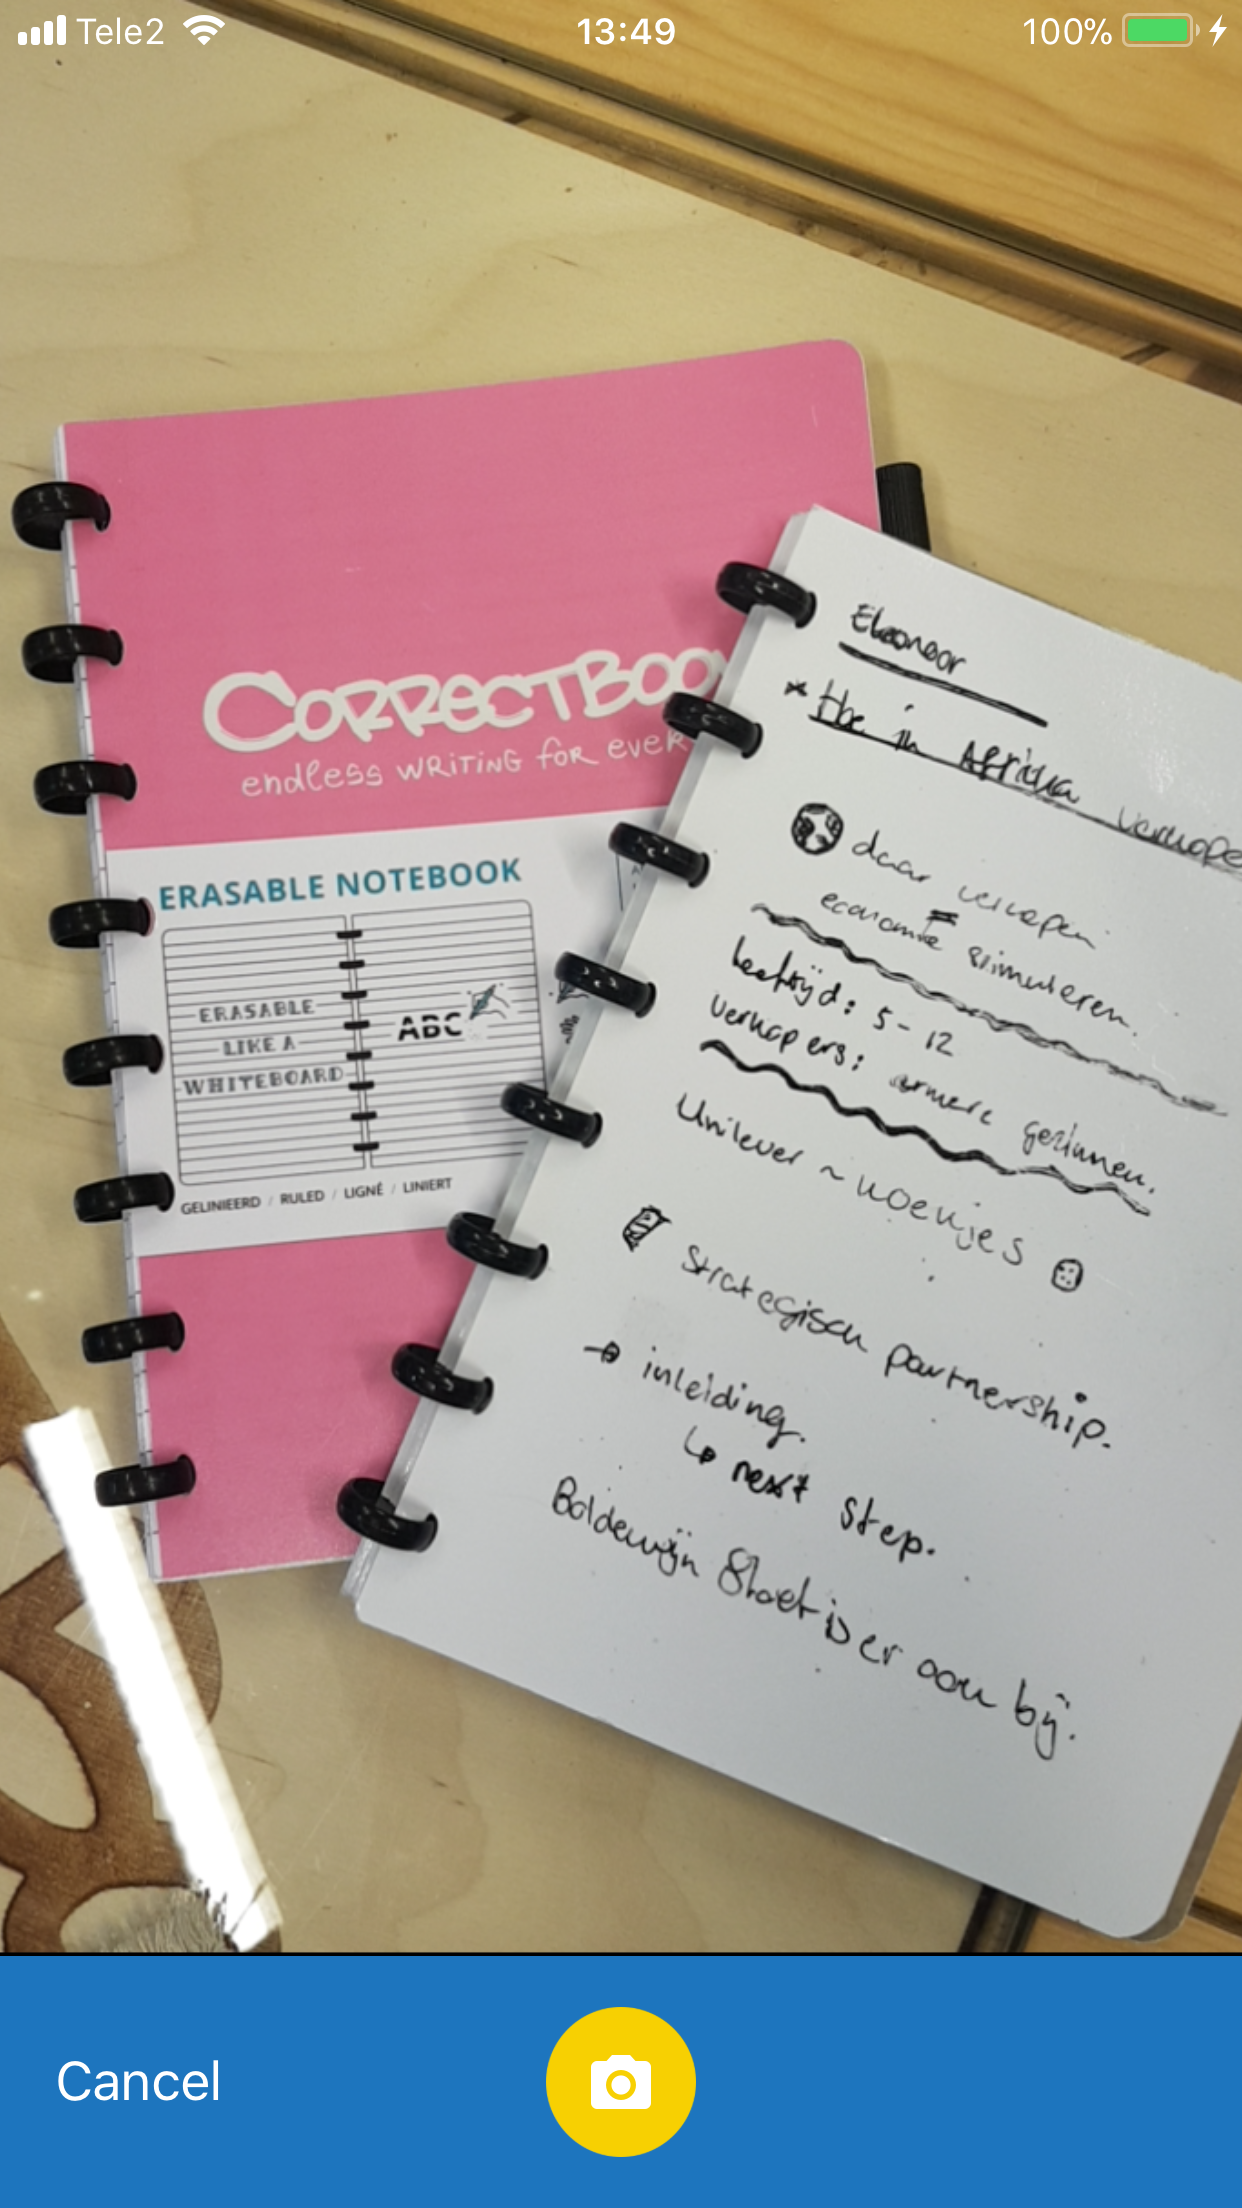 Tele2 13:49 100%
CORRECTBOO
endless WRITING for ever
ERASABLE NOTEBOOK
ERASABLE
LIKE A
WHITEBOARD
ABC
GELINIEERD / RULED / LIGNÉ / LINIERT
Eleonoor
* Hoe in Afrika verkope
daar verkopen
=
economie stimuleren.
leeftijd: 5-12
verkopers: armere gezinnen.
Unilever ~ koekjes
Strategisch partnership.
→ inleiding.
↳ next step.
Boldewijn er aan bij.
Cancel